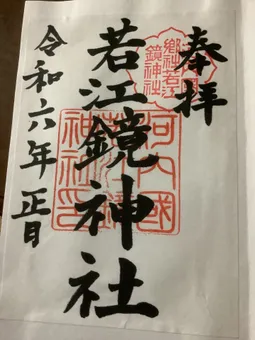 奉拝
郷社若江
鏡神社
若江鏡神社
河内國
神社印
令和六年正月